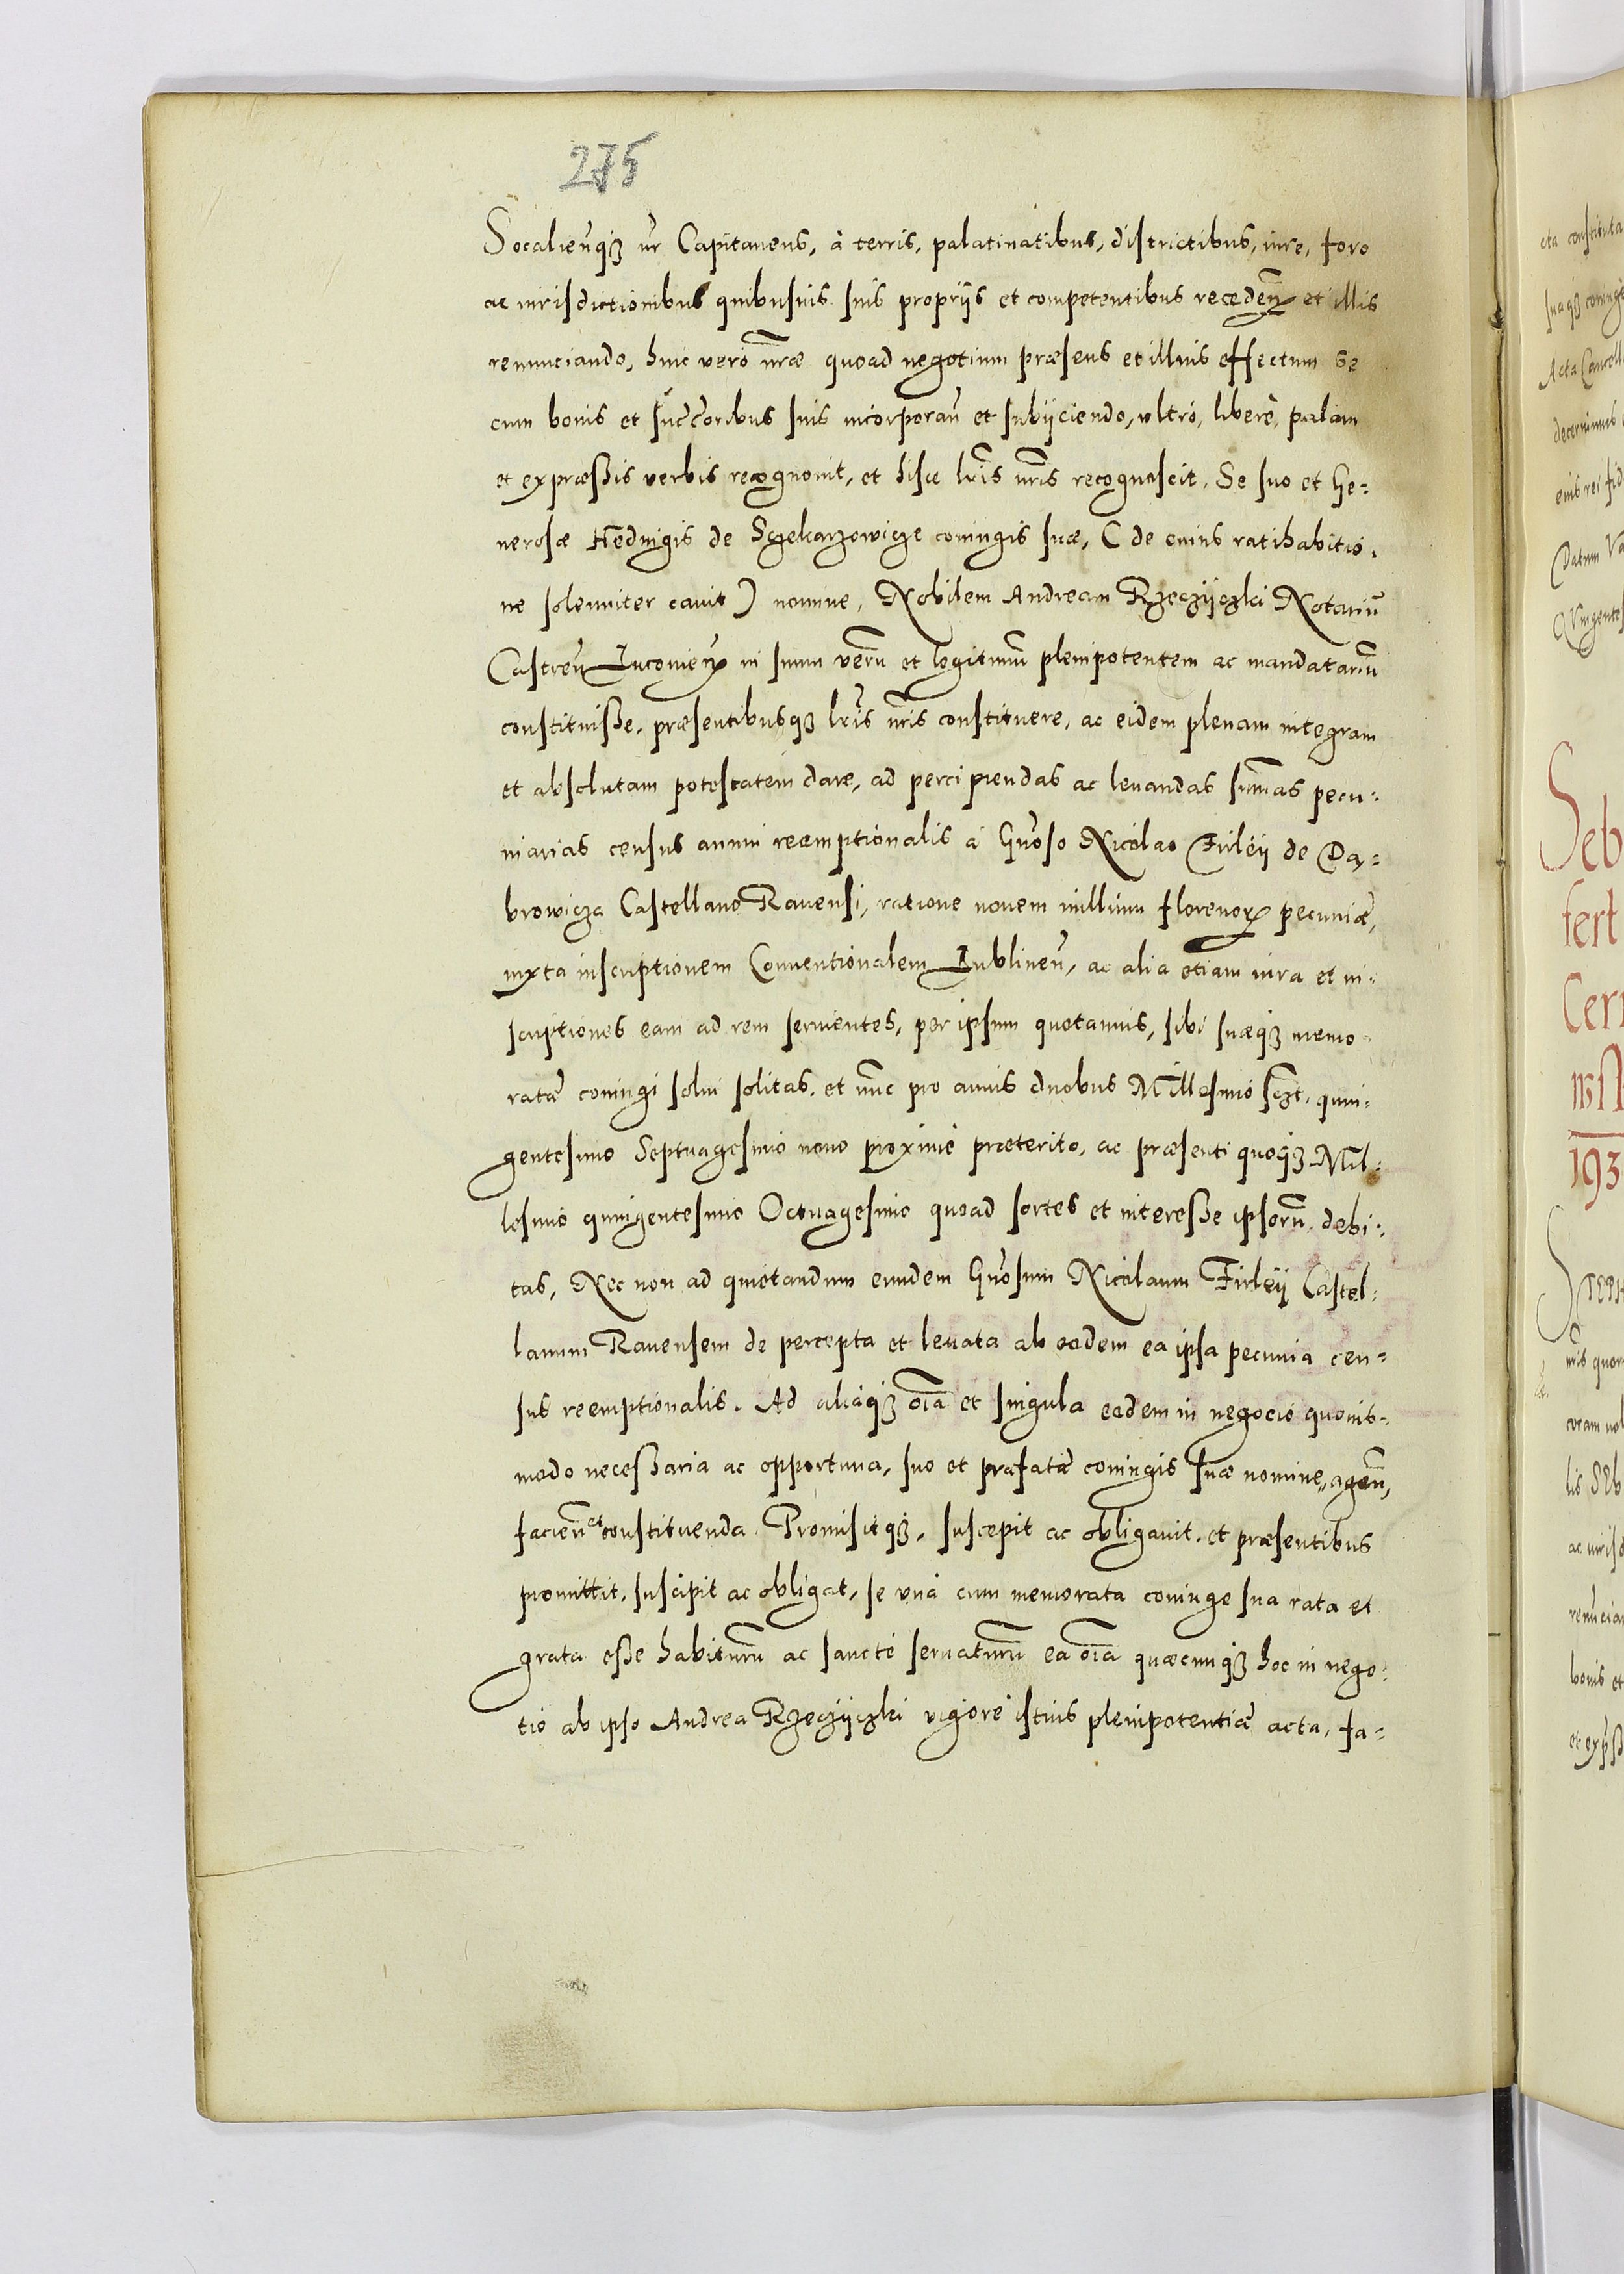 275
Socalien̄qꝫ nr̄ Capitaneus, à terris, palatinatibus, districtibus, iure, foro
ac iurisdictionibus quibusuis suis propriis et competentibus receden̄ et illis
renunciando, huic verò nr̄ae quoad negotium praesens et illius effectum se
cum bonis et succ̄oribus suis incorporan̄ et subijciendo, vltrò, liberè, palam
et expraessis verbis recognouit, et hisce lr̄is nr̄is recognoscit. Se suo et Ge-
nerosae Hedwigis de Szelcarzowicze coniugis suae, (de cuius ratihabitio-
ne solenniter cauit) nomine, Nobilem Andream Rzeczijczki Notariū
Castren̄ Luconien̄ in suum verū et legitimū plenipotentem ac mandatariū
constituisse, praesentibusqꝫ lr̄is nr̄is constituere, ac eidem plenam integram
et absolutam potestatem dare, ad percipiendas ac leuandas sum̄as pecu-
niarias census annui reemptionalis à Gn̄oso Nicolao Firleij de Da-
browicza Castellano Rauensi, ratione nouem millium florenorꝝ pecuniae,
iuxta inscriptionem Conuentionalem Lublinen̄, ac alia etiam iura et in-
scriptiones eam ad rem seruientes, per ipsum quotannis, sibi suaeqꝫ memo-
ratae coniugi solui solitas, et nūc pro annis duobus Millesimo sczt. quin-
gentesimo Septuagesimo nono proximè praeterito, ac praesenti quoqꝫ Mil-
lesimo quingentesimo Octuagesimo quoad sortes et interesse ipsorū debi-
tas, Nec non ad quietandum eundem Gn̄osum Nicolaum Firleij Castel-
lanum Rauensem de percepta et leuata ab eodem ea ipsa pecunia cen-
sus reemptionalis. Ad aliaqꝫ oīa et singula eodem in negocio quouis-
modo necessaria ac opportuna, suo et praefatae coniugis suae nomine, agen̄,
facien̄ et constituenda. Promisitqꝫ, suscepit ac obligauit, et praesentibus
promittit, suscipit ac obligat, se vnà cum memorata coniuge sua rata et
grata esse habiturū ac sanctè seruaturū ea oīa quaecunqꝫ hoc in nego-
tio ab ipso Andrea Rzeczijczki vigore istius plenipotentiae acta, fa-
cta constituta
Acta Cancell
decernimus
eius rei fid
Datum Va
Quingentes
Seb
fert
Cern
193
mis quor
coram nob
renuncian
bonis et